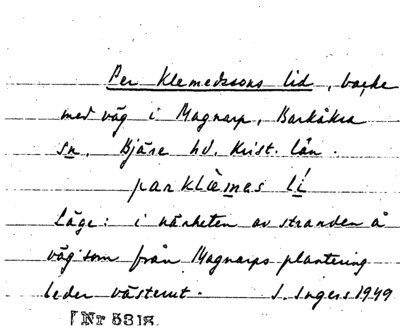 Per Klemedssons lid, backe
med väg i Magnarp, Barkåkra
sn. Bjäre hd. Krist. län.
parklæmes lí
Läge: i närheten av stranden å
väg som från Magnarps plantering
leder västerut. S. Ingers 1949
Nr 5318